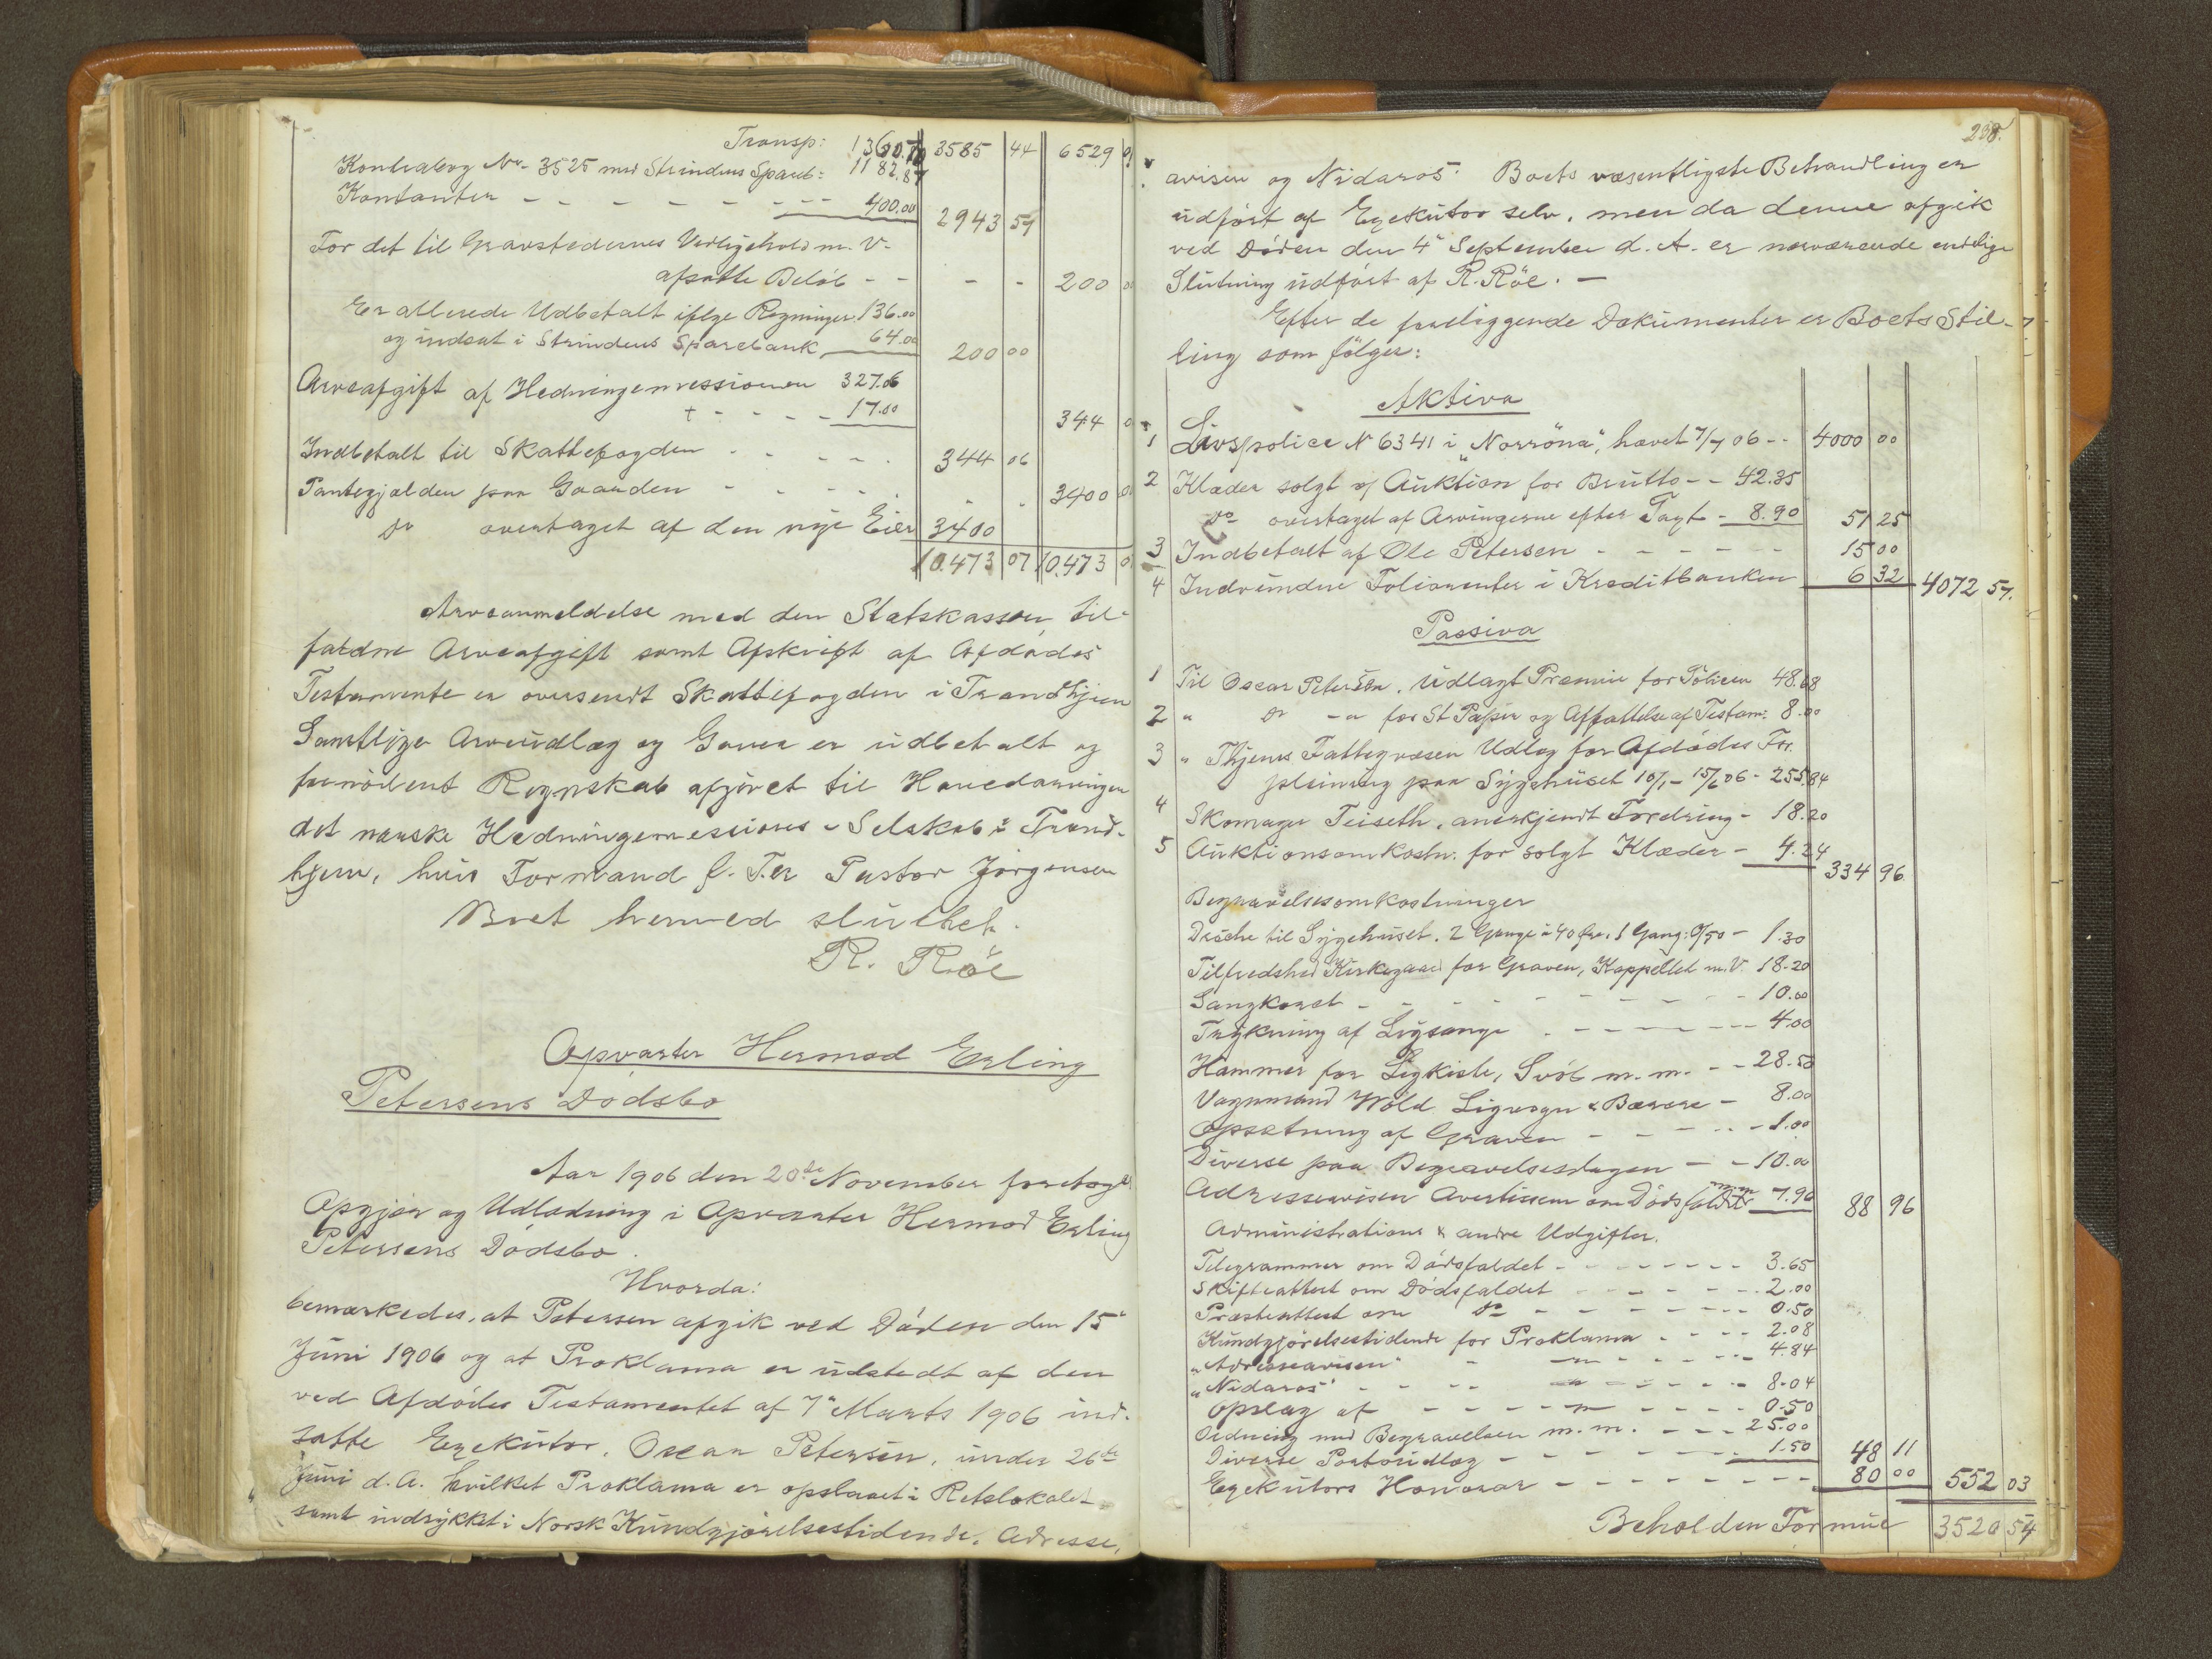 Transp: 1360.70 3585 44 6529 0
Kontrabog No. 3525 med Strindens Spareb: 1182.87
Kontanter - - - - - - - - - 400.00 2943 57
For det til Gravstedernes Vedligehold m. V.
afsatte Beløb - - - - 200 0
Er allerede Udbetalt ifølge Regninger 136.00
og indsat i Strindens Sparebank 64.00 200 00
Arveafgift af Hedningemissionen 327.06
+ - - - - 17.00 344 0
Indbetalt til Skattefogden - - - - 344 06
Pantegjælden paa Gaarden - - - - - - 3400 00
do overtaget af den nye Eier 3400
10.473 07 10.473 0
Arveanmeldelse med den Statskassen til-
faldne Arveafgift samt Afskrift af Afdødes
Testamente er oversendt Skattefogden i Trondhjem
Samtlige Arveudlæg og Gaver er udbetalt og
fornødent Regnskab afgivet til Hovedarvingen
det norske Hedningemissions-Selskab i Trond-
hjem, hvis Formand f. T. er Pastor Jørgensen
Boet hermed sluttet.
R. Röe
Opvarter Hermod Erling
Petersens Dødsbo
Aar 1906 den 20de November foretoges
Opgjør og Udlodning i Opvarter Hermod Erling
Petersens Dødsbo.
Hvorda:
bemærkedes, at Petersen afgik ved Døden den 15"
Juni 1906 og at Proklama er udstedt af den
ved Afdødes Testamentet af 7" Marts 1906 ind-
satte Exekutor, Oscar Petersen, under 26de
Juni d. A. hvilket Proklama er opslaaet i Retslokalet
samt indrykket i Norsk Kundgjørelsestidende, Adresse,
238.
avisen og Nidaros. Boets væsentligste Behandling er
udført af Exekutor selv, men da denne afgik
ved Døden den 4" September d. A. er nærværende endelige
Slutning udført af R. Röe. —
Efter de foreliggende Dokumenter er Boets Stil-
ling som følger:
Aktiva
1 Livspolice N 6341 i "Norröna", hævet 7/7 06 - - 4000 00
2 Klæder solgt v/ Auktion for Brutto - - 42.35
do overtaget af Arvingerne efter Taxt - 8.90 51 25
3 Indbetalt af Ole Petersen - - - - - 15 00
4 Indvundne Foliorenter i Kreditbanken 6 32 4072 57.
Passiva
1 Til Oscar Petersen, Udlagt Præmie for Policen 48.68
2 " do -" for St. Papir og Affattelse af Testam: 8.00
3 " Thjems Fattigvæsen Udlæg for Afdødes For-
pleining paa Sygehuset 10/1 - 15/6 06 - 255.84
4 Skomager Teiseth, anerkjendt Fordring - 18.20
5 Auktionsomkostn. for solgt Klæder - 4.24 334 96
Begravelsesomkostninger
Drosche til Sygehuset. 2 Gange à 40 Øre, 1 Gang: 0/50 - 1.30
Tilfredshed Kirkegaard for Graven, Kappellet m. V. 18.20
Sangkoret - - - - - - - - - 10.00
Trykning af Ligsange - - - - - - 4.00
Hammer for Ligkiste, Svøb m. m. - - 28.50
Vognmand Wold Ligvogn & Bærere - 8.00
Opsætning af Graven - - - - - 1.00
Diverse paa Begravelsesdagen - - 10.00
Adresseavisen Avertissem om Dødsfaldet m m 7.96 88 96
Administrations & andre Udgifter.
Telegrammer om Dødsfaldet - - - - - - - 3.65
Skifteattest om Dødsfaldet - - - - - 2.00
Præsteattest om do - - - - - - 0.50
Kundgjørelsestidende for Proklama - - - - 2.08
"Adresseavisen" - -"- - - - - 4.84
"Nidaros" - - - - -"- - - - - 8.04
Opslag af - - - - -"- - - - - 0.50
Ordning med Begravelsen m. m. - - - 25.00
Diverse Portoudlæg - - - - - - 1.50 48 11
Exekutors Honorar - - - - - - - - 80 00 552 03
Beholden Formue 3520 54